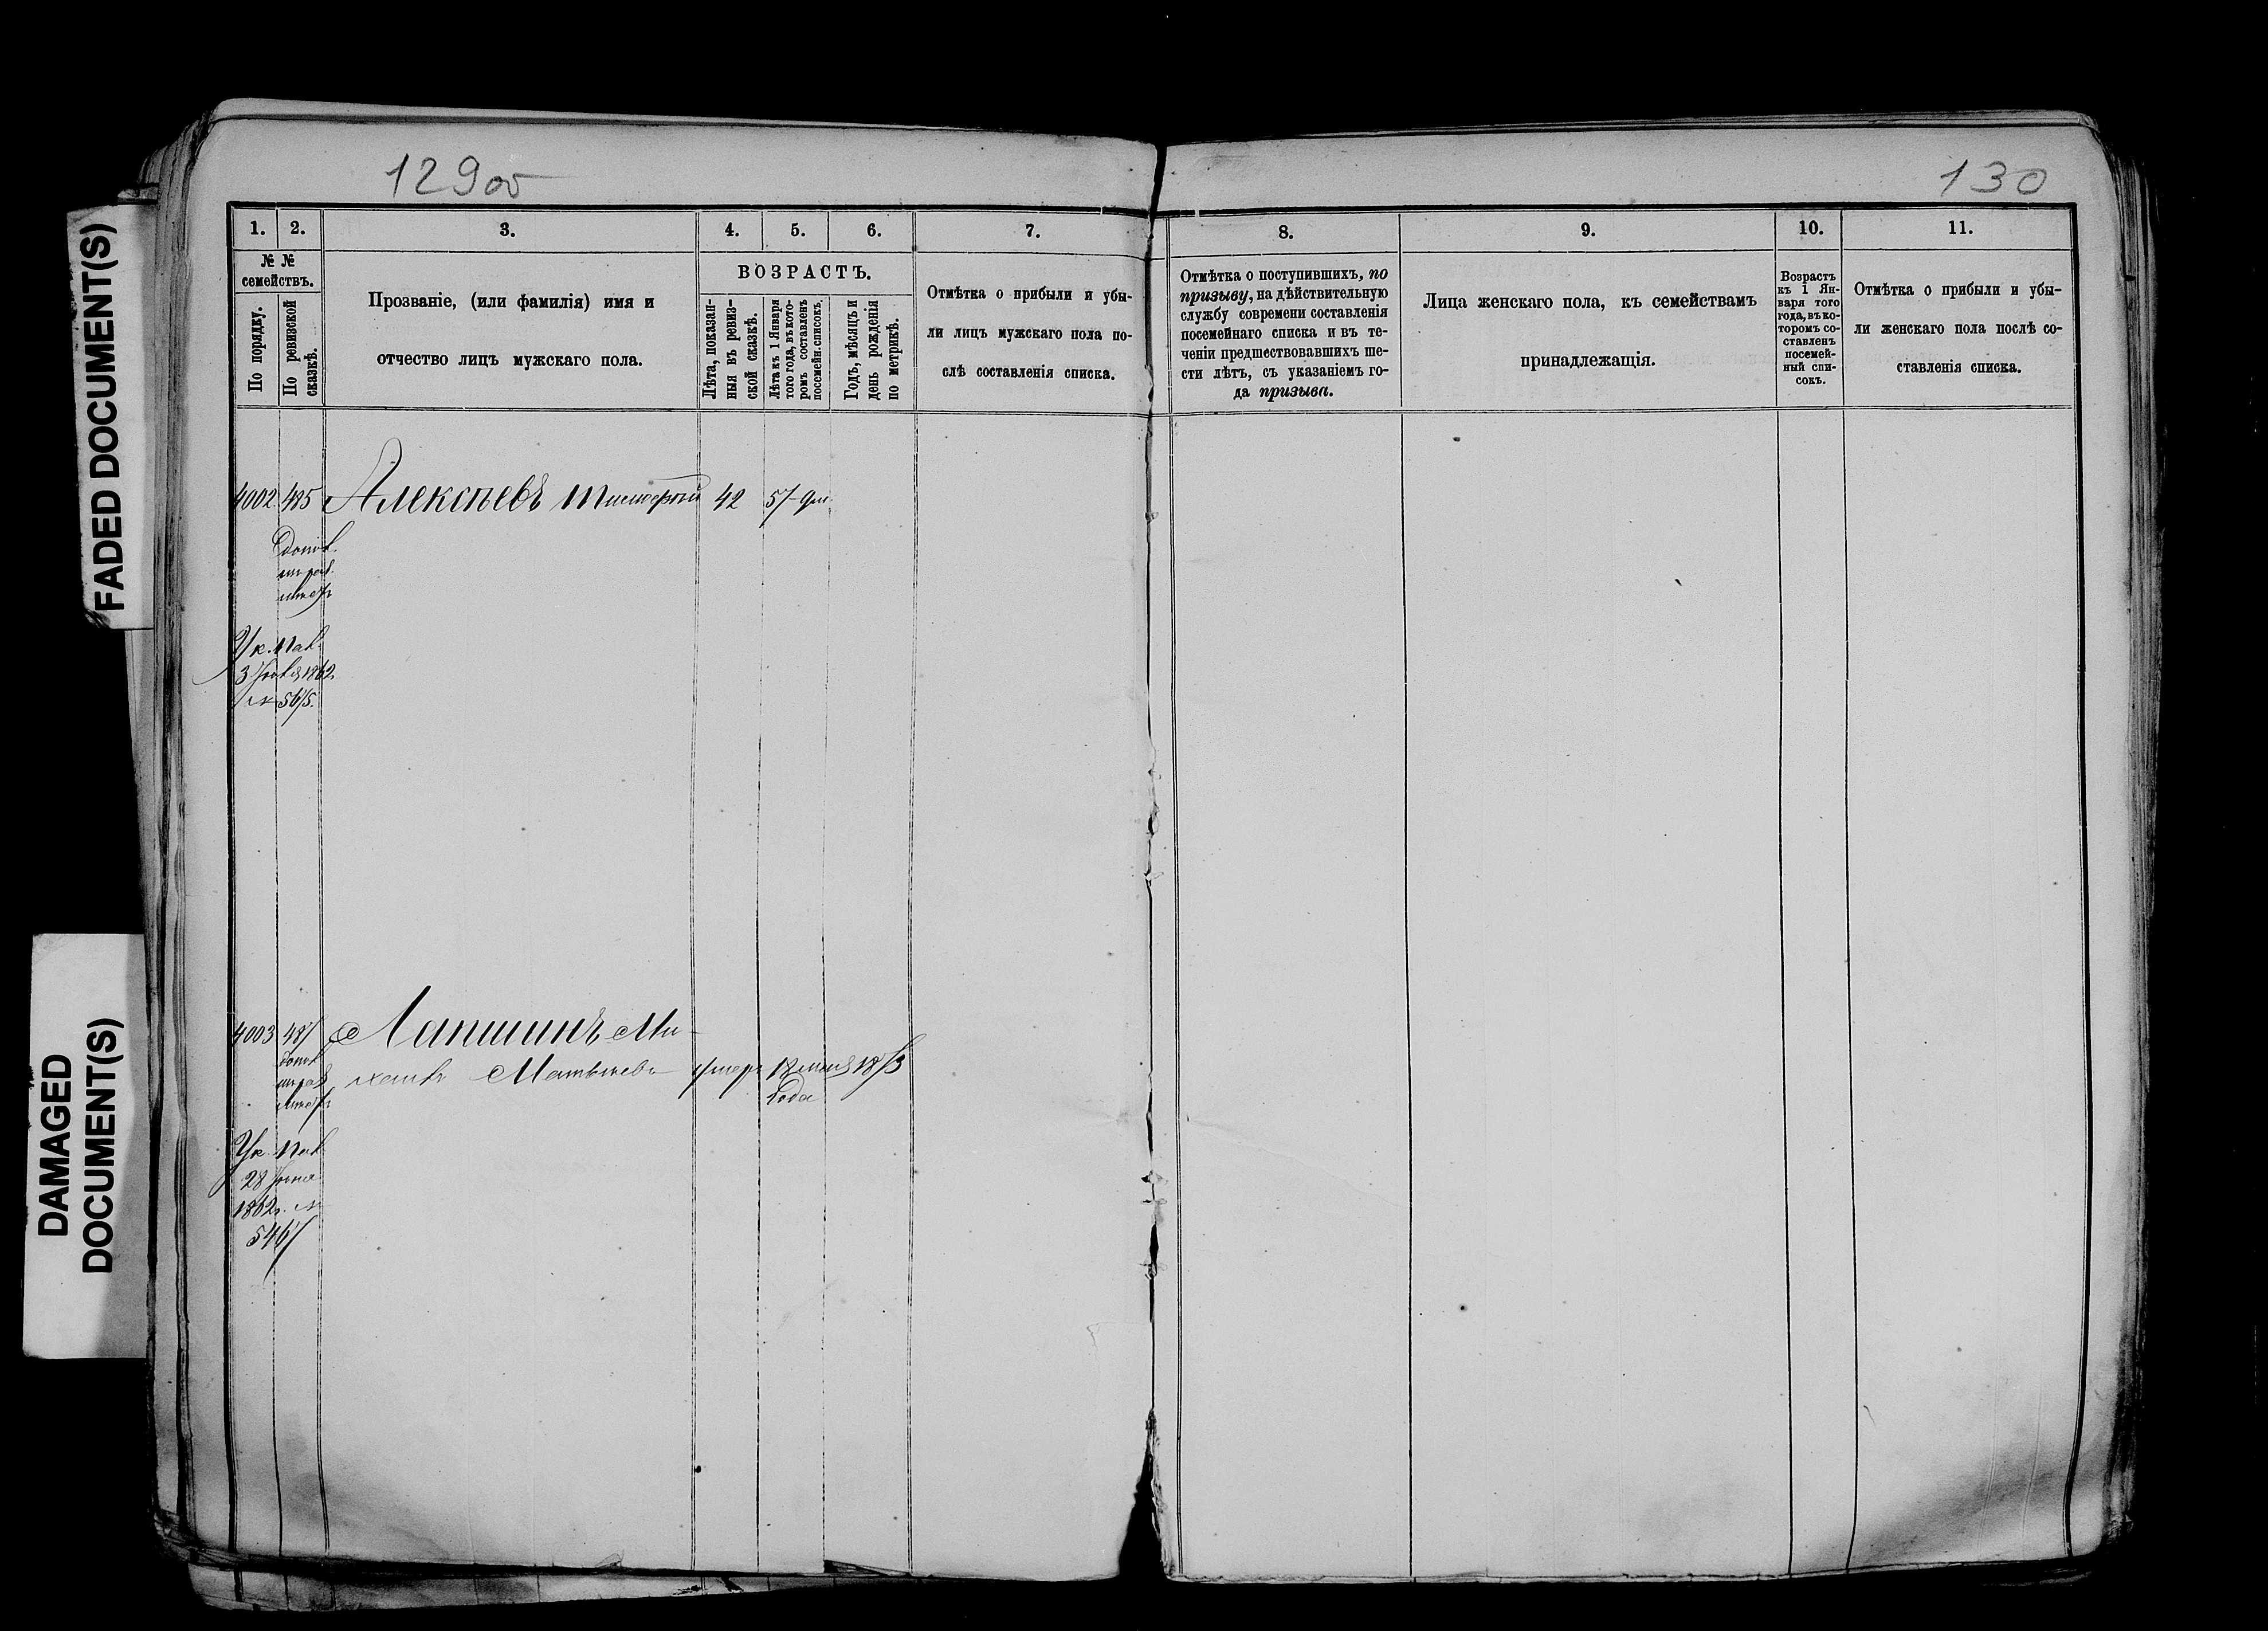 FADED DOCUMENT(S)
DAMAGED
DOCUMENT(S)
129 об
130
1. 2. 3. 4. 5. 6. 7.
№ №
семействъ.
По порядку.
По ревизской
сказкѣ.
Прозваніе, (или фамилія) имя и
отчество лицъ мужскаго пола.
ВОЗРАСТЪ.
Лѣта, показан-
ныя въ ревиз-
ской сказкѣ.
Лѣта къ 1 Января
того года, въ кото-
ромъ составленъ
посемейн. списокъ.
Годъ, мѣсяцъ и
день рожденія
по метрикѣ.
Отмѣтка о прибыли и убы-
ли лицъ мужскаго пола по-
слѣ составленія списка.
8. 9. 10. 11.
Отмѣтка о поступившихъ, по
призыву, на дѣйствительную
службу современи составленія
посемейнаго списка и въ те-
ченіи предшествовавшихъ ше-
сти лѣтъ, съ указаніемъ го-
да призыва.
Лица женскаго пола, къ семействамъ
принадлежащія.
Возрастъ
къ 1 Ян-
варя того
года, въ ко-
торомъ со-
ставленъ
посемей-
ный спи-
сокъ.
Отмѣтка о прибыли и убы-
ли женскаго пола послѣ со-
ставленія списка.
4002 485 Алексѣевъ Тимофей 42 57
Ук. Пал.
1862
№ 5675.
4003 487 Лапшинъ Ми-
хаилъ Матвѣевъ умеръ 18 1873
года
Ук. Пал
28 Іюня
1862г. №
5467